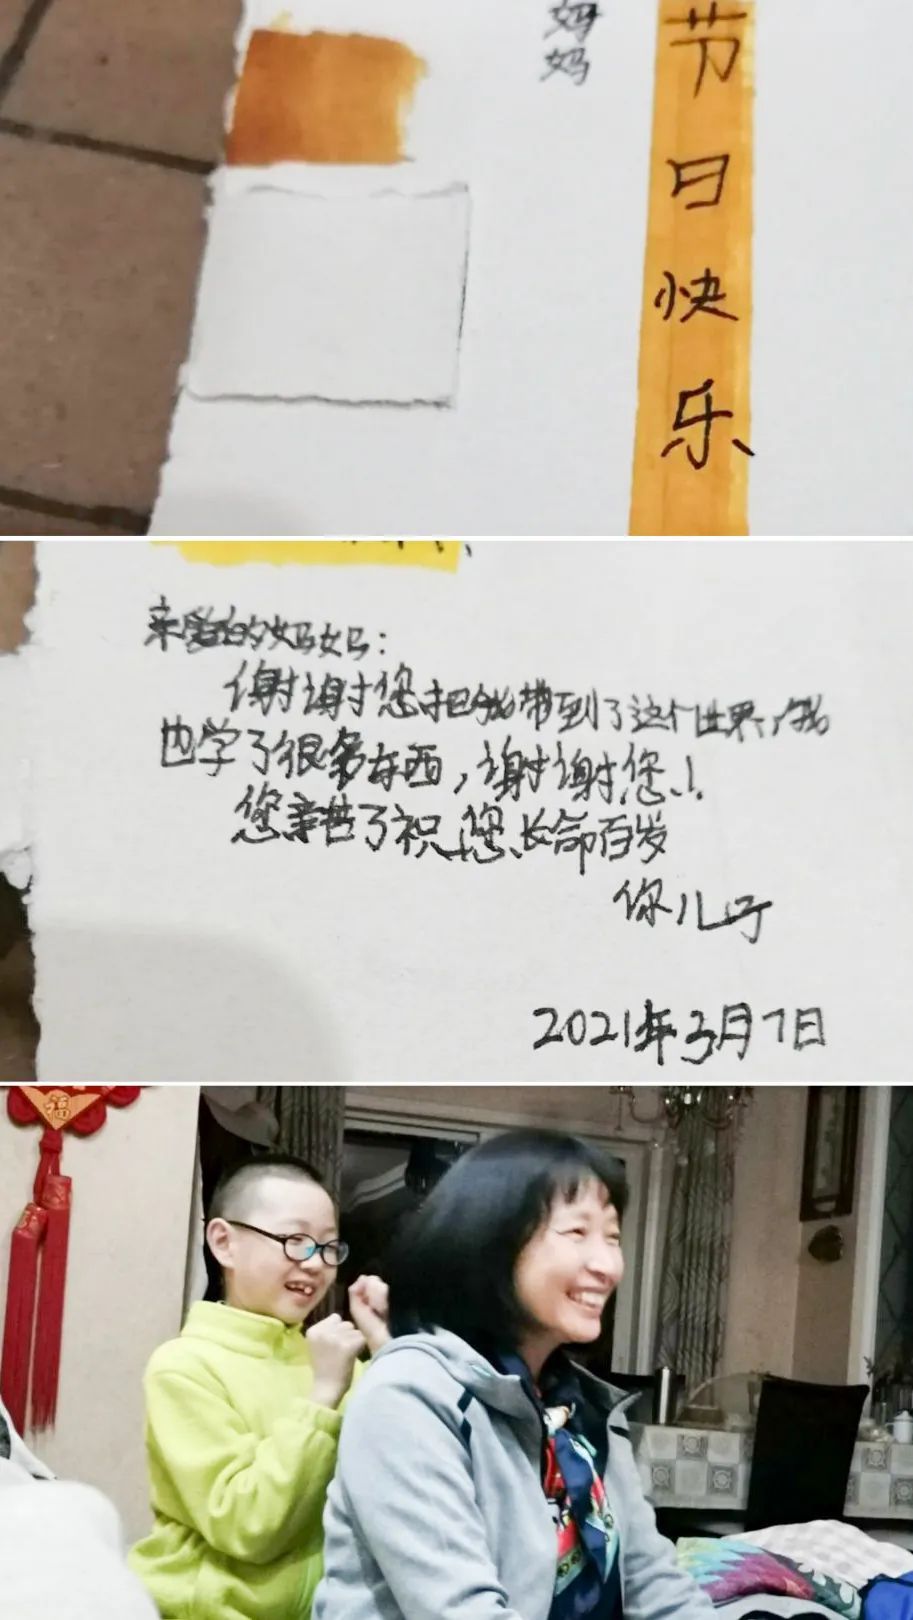 妈妈
节日快乐
亲爱的妈妈：
谢谢您把我带到了这个世界，我
也学了很多东西，谢谢您！
您辛苦了祝您长命百岁
你儿子
2021年3月7日
福